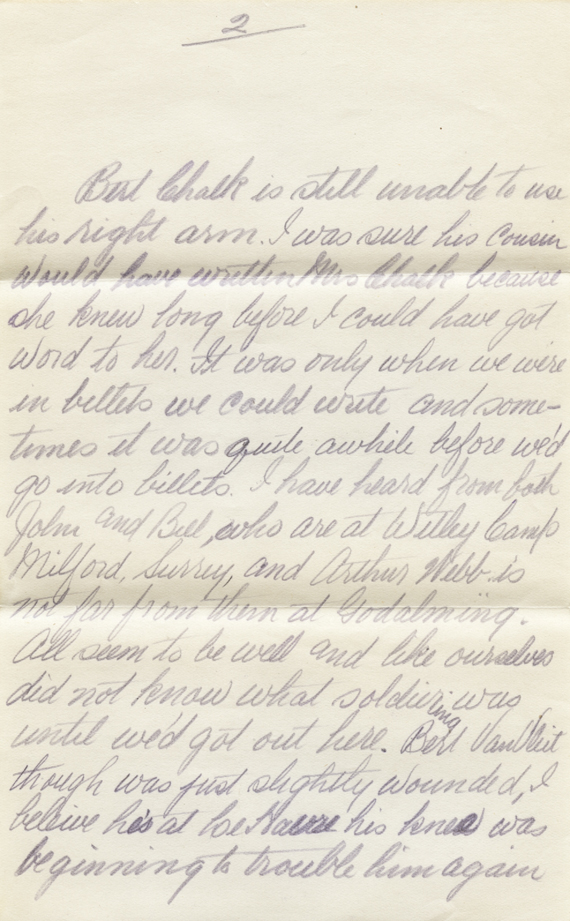 2
Bert Chalk is still unable to use
his right arm. I was sure his cousin
would have written Mrs Chalk because
she knew long before I could have got
word to her. It was only when we were
in billets we could write and some-
times it was quite awhile before we'd
go into billets. I have heard from both
John and Bill, who are at Witley Camp
Milford, Surrey, and Arthur Webb is
not far from them at Godalming.
All seem to be well and like ourselves
did not know what soldiering was
until we'd got out here. Bert VanVleit
though was just slightly wounded, I
beleive he's at Le Havre his knee was
beginning to trouble him again